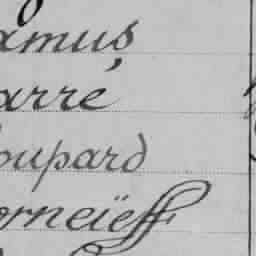 amus
arré
oupard
orneïeff